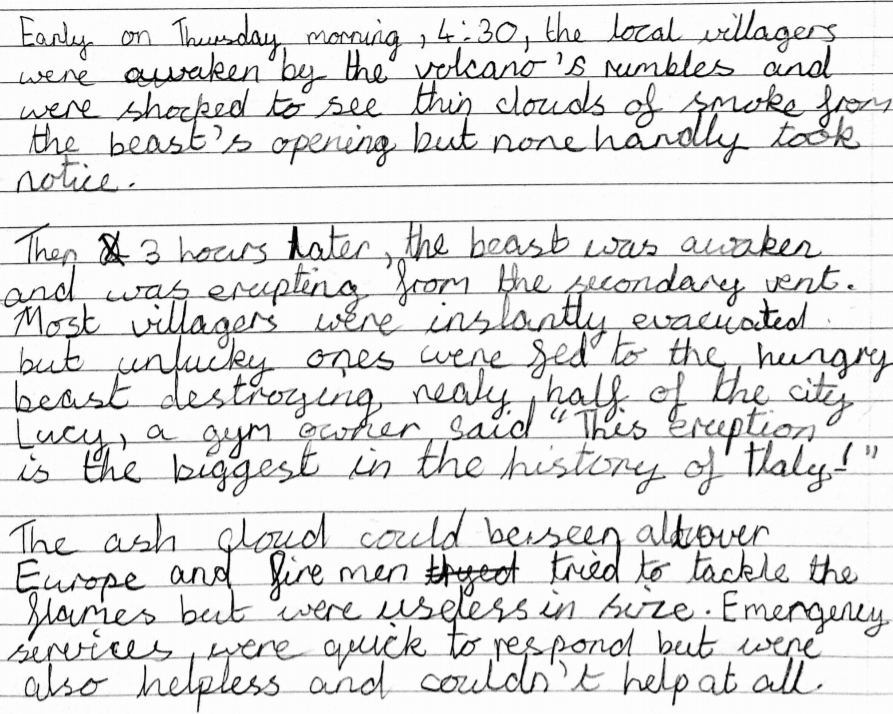 Early on Thursday morning, 4:30, the local villagers
were awaken by the volcano's rumbles and
were shocked to see thin clouds of smoke from
the beast's opening but none hardly took
notice.
Then 3 hours later, the beast was awaken
and was erupting from the secondary vent.
Most villagers were instantly evacuated
but unlucky ones were fed to the hungry
beast destroying nealy half of the city
Lucy, a gym owner said "This eruption
is the biggest in the history of Italy!"
The ash cloud could be seen all over
Europe and fire men tried to tackle the
flames but were useless in size. Emergency
services were quick to respond but were
also helpless and couldn't help at all.